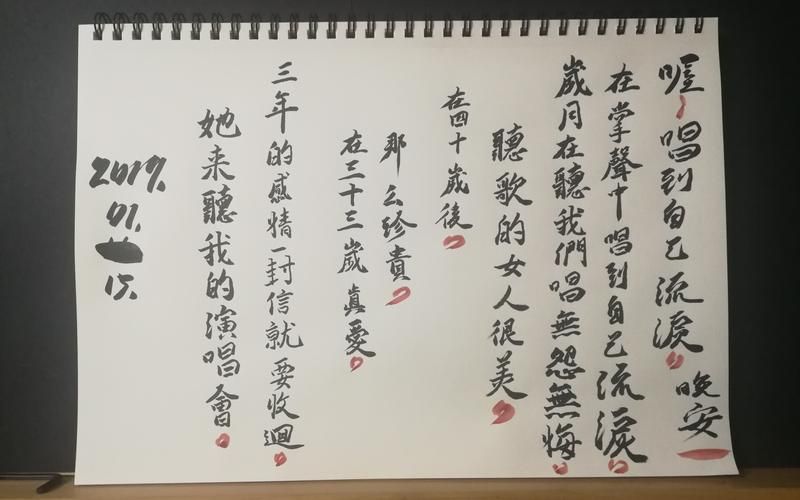 2019.
01.
15.
她来聽我的演唱會
三年的感情一封信就要收迴
在三十三歲眞愛
那么珍貴
在四十歲後
聽歌的女人很美
歲月在聽我們唱無怨無悔
在掌聲中唱到自己流淚
喔 唱到自己流淚
晚安